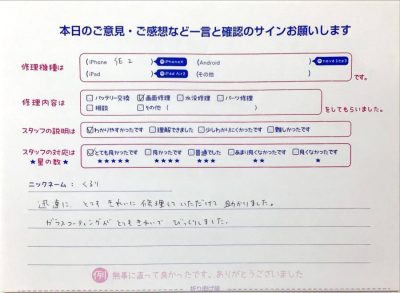 本日のご意見・ご感想など一言と確認のサインお願いします
修理機種は
(iPhone SE2 ) iPhoneX (Android )
(iPad ) iPad Air2 (その他 ) です。
修理内容は
□バッテリー交換 ☑画面修理 □水没修理 □パーツ修理
□相談 □その他( ) をしてもらいました。
スタッフの説明は ☑わかりやすかったです □理解できました □少しわかりにくかったです □難しかったです
スタッフの対応は ☑とても良かったです □良かったです □普通でした □あまり良くなかったです □良くなかったです
★星の数★ ★★★★★ ★★★★ ★★★ ★★ ★
ニックネーム: くるり
迅速に、とてもきれいに修理していただけて助かりました。
ガラスコーティングがとてもきれいでびっくりしました。
例 無事に直って良かったです。ありがとうございました